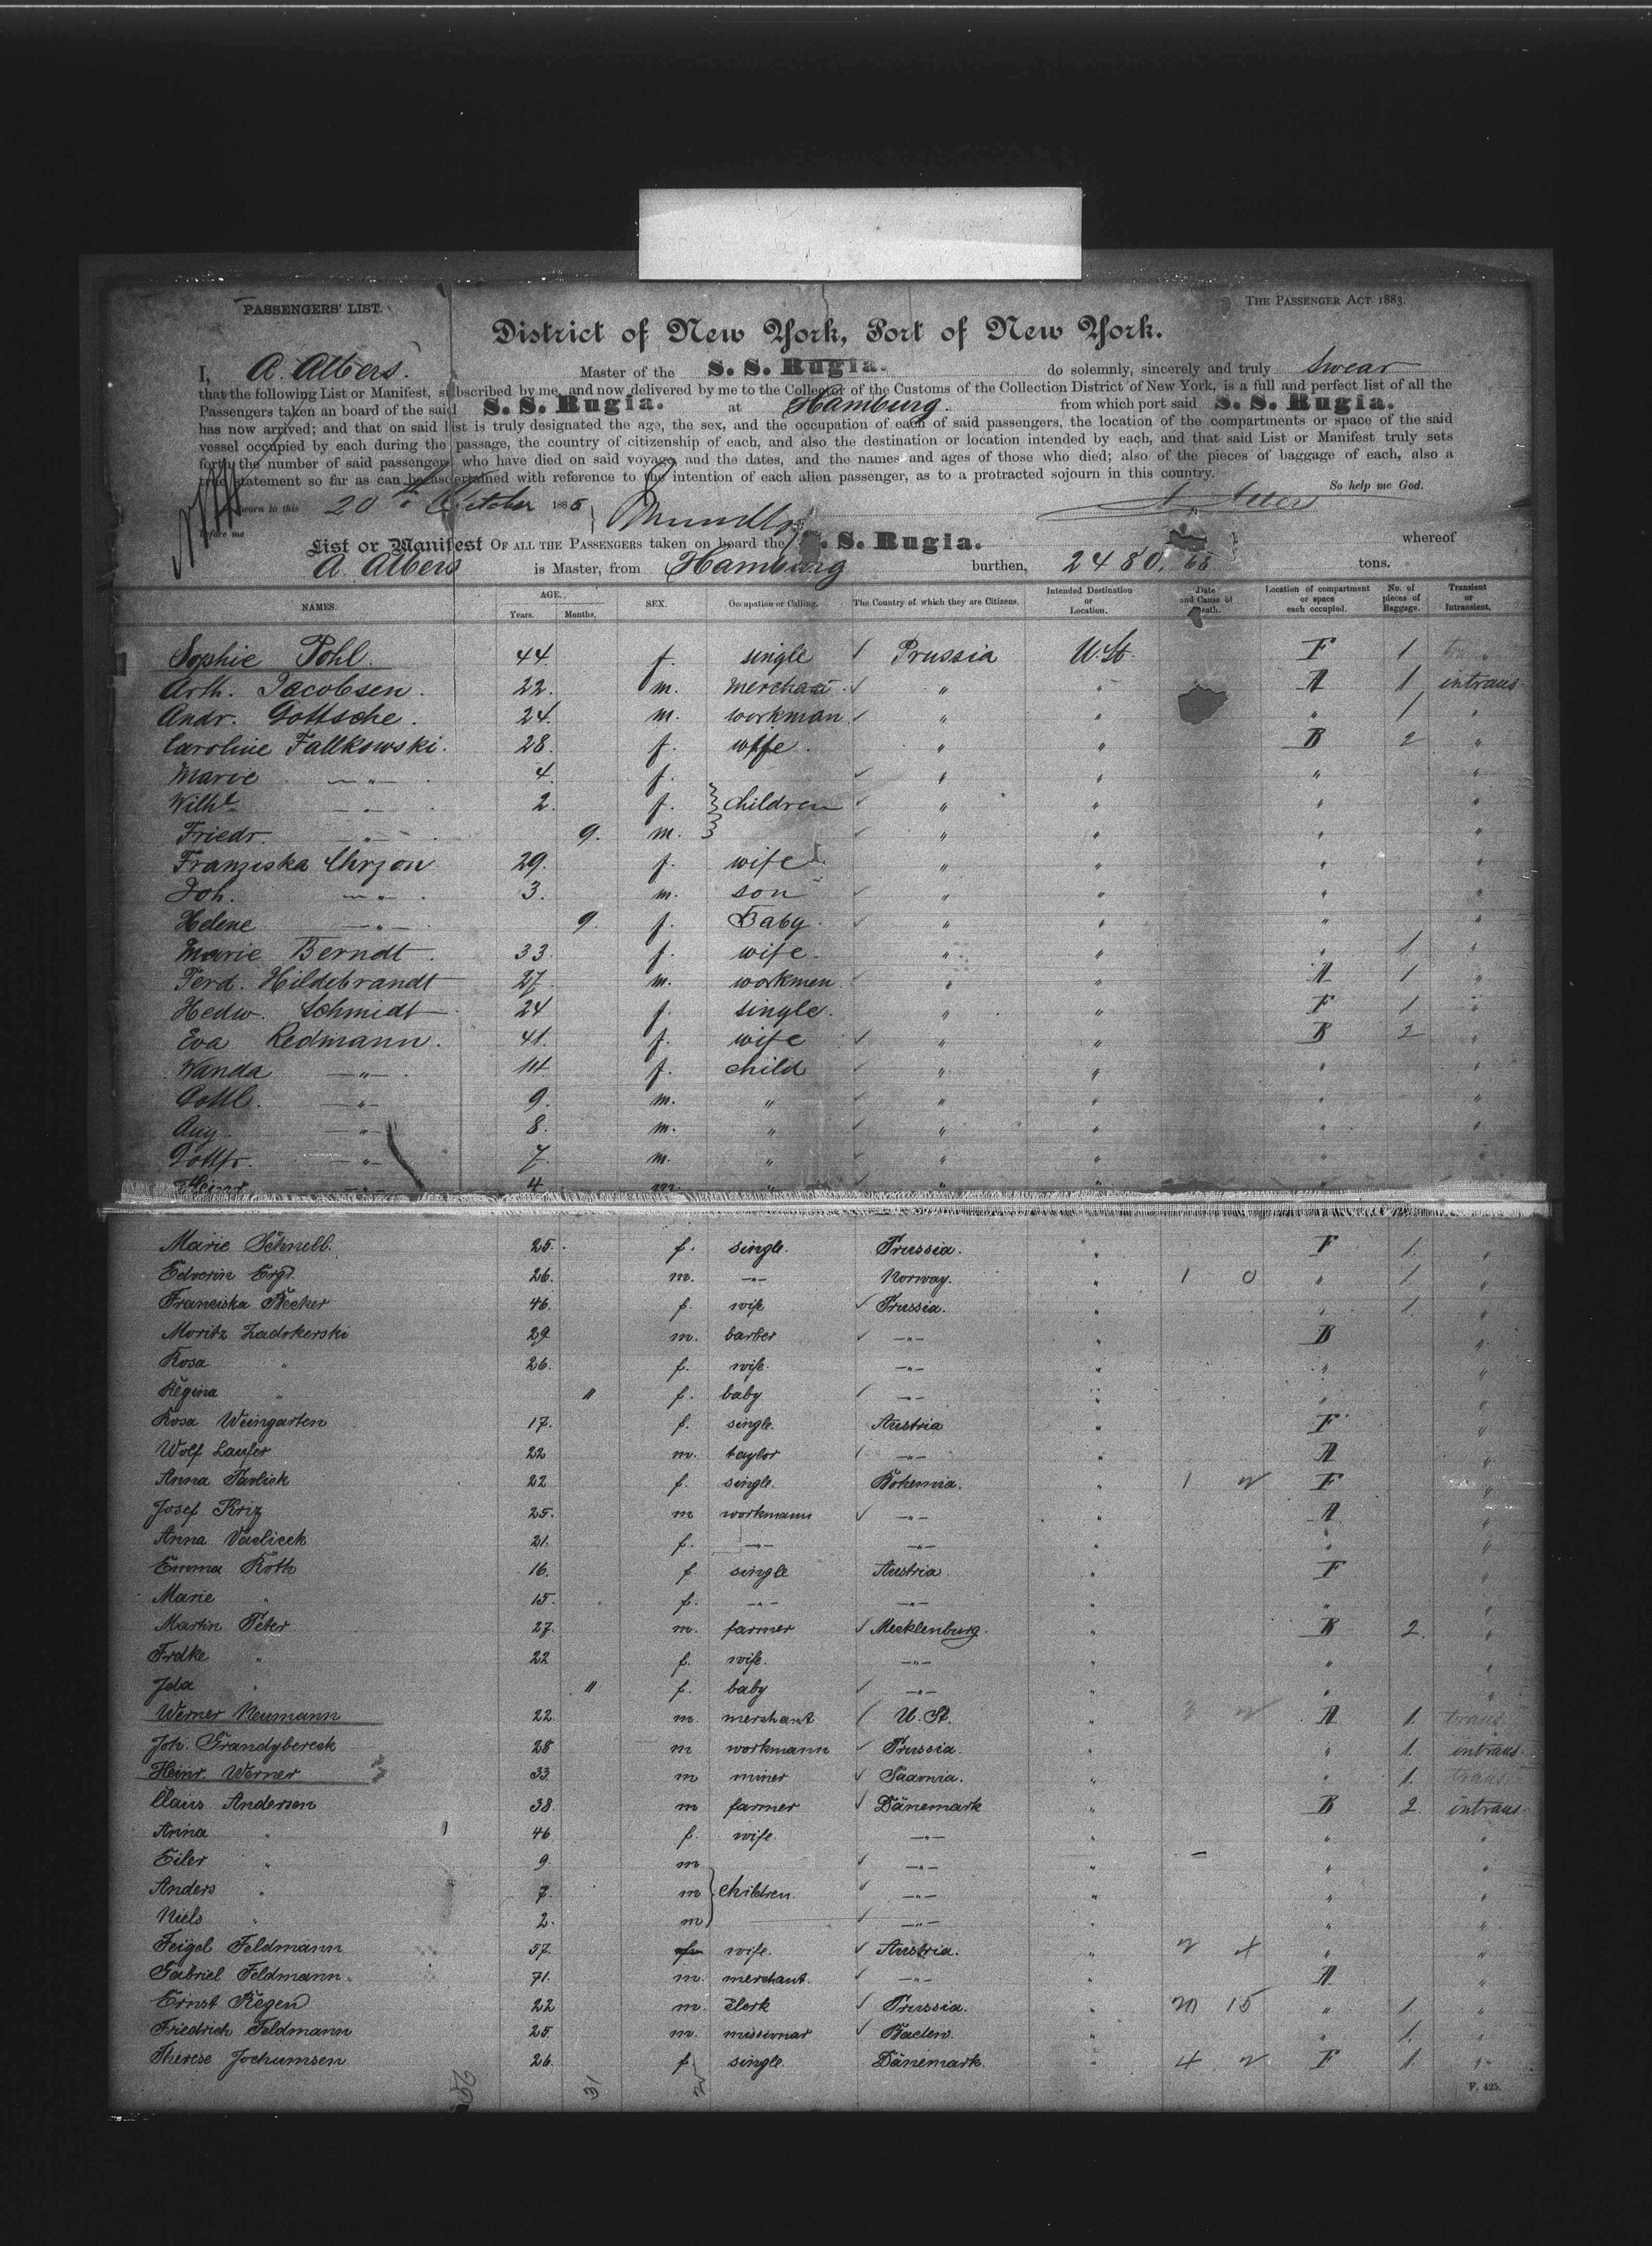 PASSENGERS' LIST.
THE PASSENGER ACT 1883.
District of New York, Port of New York.
I, A. Albers. Master of the S. S. Rugia. do solemnly, sincerely and truly swear
that the following List or Manifest, subscribed by me, and now delivered by me to the Collector of the Customs of the Collection District of New York, is a full and perfect list of all the
Passengers taken an board of the said S. S. Rugia. at Hamburg. from which port said S. S. Rugia.
has now arrived; and that on said list is truly designated the age, the sex, and the occupation of each of said passengers, the location of the compartments or space of the said
vessel occupied by each during the passage, the country of citizenship of each, and also the destination or location intended by each, and that said List or Manifest truly sets
forth the number of said passengers who have died on said voyage, and the dates, and the names and ages of those who died; also of the pieces of baggage of each, also a
true statement so far as can be ascertained with reference to the intention of each alien passenger, as to a protracted sojourn in this country.
So help me God.
Sworn to this 20th October 1885
before me
List or Manifest OF ALL THE PASSENGERS taken on board the S. S. Rugia. whereof
A Albers is Master, from Hamburg burthen, 2480. 66 tons.
NAMES. AGE. Years. Months. SEX. Occupation or Calling. The Country of which they are Citizens. Intended Destination or Location. Date and Cause of Death. Location of compartment or space each occupied. No. of pieces of Baggage. Transient or Intransient.
Sophie Pohl. 44. f. single Prussia U. St. F 1
Arth. Jacobsen. 22. m. merchant " " A 1 intrans.
Andr. Gottsche. 24. m. workman " " " 1 "
Caroline Falkowski. 28. f. wife " " B 2 "
Marie " 4. f. " " " "
Wilh. " 2. f. children " " " "
Friedr. " 9. m. " " " "
Franziska Chrzon 29. f. wife " " " "
Joh. " 3. m. son " " " "
Helene " 9. f. Baby. " " " "
Marie Berndt. 33. f. wife. " " " 1 "
Ferd. Hildebrandt 27. m. workmen " " A 1 "
Hedw. Schmidt 24 f. single. " " F 1 "
Eva Redmann. 41. f. wife " " B 2 "
Wanda " 14 f. child " " " "
Gottl. " 9. m. " " " " "
Aug. " 8. m. " " " " "
Gottfr. " 7. m. " " " " "
Heinr. " 4. m. " " " "
Marie Schnell. 25. f. single. Prussia. " F 1. "
Edverin Ergt. 26. m. -"- Norway. " 1 0 " 1. "
Franziska Becker 46. f. wife Prussia. " " 1. "
Moritz Zadokerski 29 m. barber -"- " B "
Rosa " 26. f. wife. -"- " " "
Regina " 11 f. baby -"- " " "
Rosa Weingarten 17. f. single. Austria " F "
Wolf Laufer 22 m. taylor -"- " A "
Anna Pavlick 22 f. single. Bohemia. " 1 2 F "
Josef Kriz 25. m workmann -"- " A "
Anna Vaclicek 21. f. -"- -"- " " "
Emma Roth 16. f. single Austria " F "
Marie " 15. f. -"- -"- " " "
Martin Peter 27. m. farmer Mecklenburg. " B 2. "
Frdke " 22 f. wife. -"- " " "
Ida " 11 f. baby -"- " " "
Werner Neumann 22. m. merchant U. St. " 3 2 A 1. trans
Joh. Grandybereck 28 m workmann Prussia. " " 1. intrans.
Heinr. Werner 33. m miner Saxonia. " " 1. trans.
Claus Andersen 38. m farmer Dänemark " B 2 intrans.
Anna " 46 f. wife. -"- " " "
Eiler " 9. m -"- " " "
Anders " 7. m children. -"- " " "
Niels " 2. m -"- " " "
Feigel Feldmann 57. wife. Austria. " 2 4 " "
Gabriel Feldmann. 71. m. merchant. -"- " A "
Ernst Regen 22 m. clerk Prussia. " 20 15 " 1. "
Friedrich Feldmann 25. m. missionar Baden. " " 1. "
Therese Jochumsen 26. f single. Dänemark. " 4 2 F 1. "
31
F. 425.